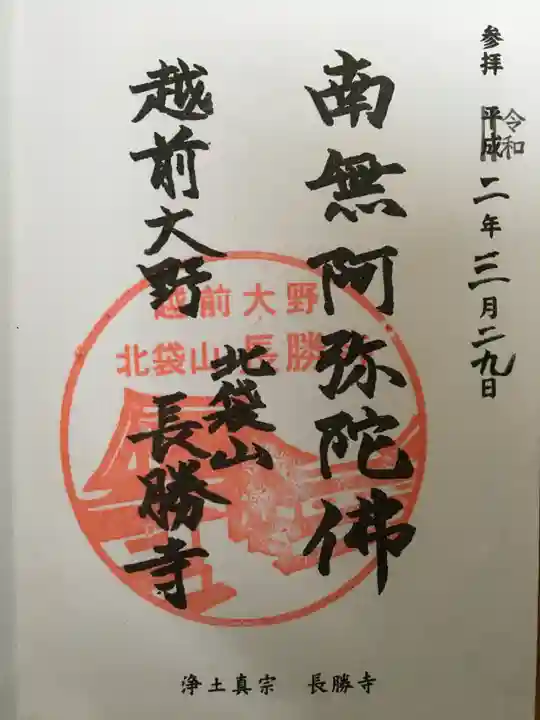 参拝 平成 令和 二年 三月 二九日
南無阿弥陀佛
越前大野
北袋山
長勝寺
越前大野
北袋山 長勝
浄土真宗 長勝寺